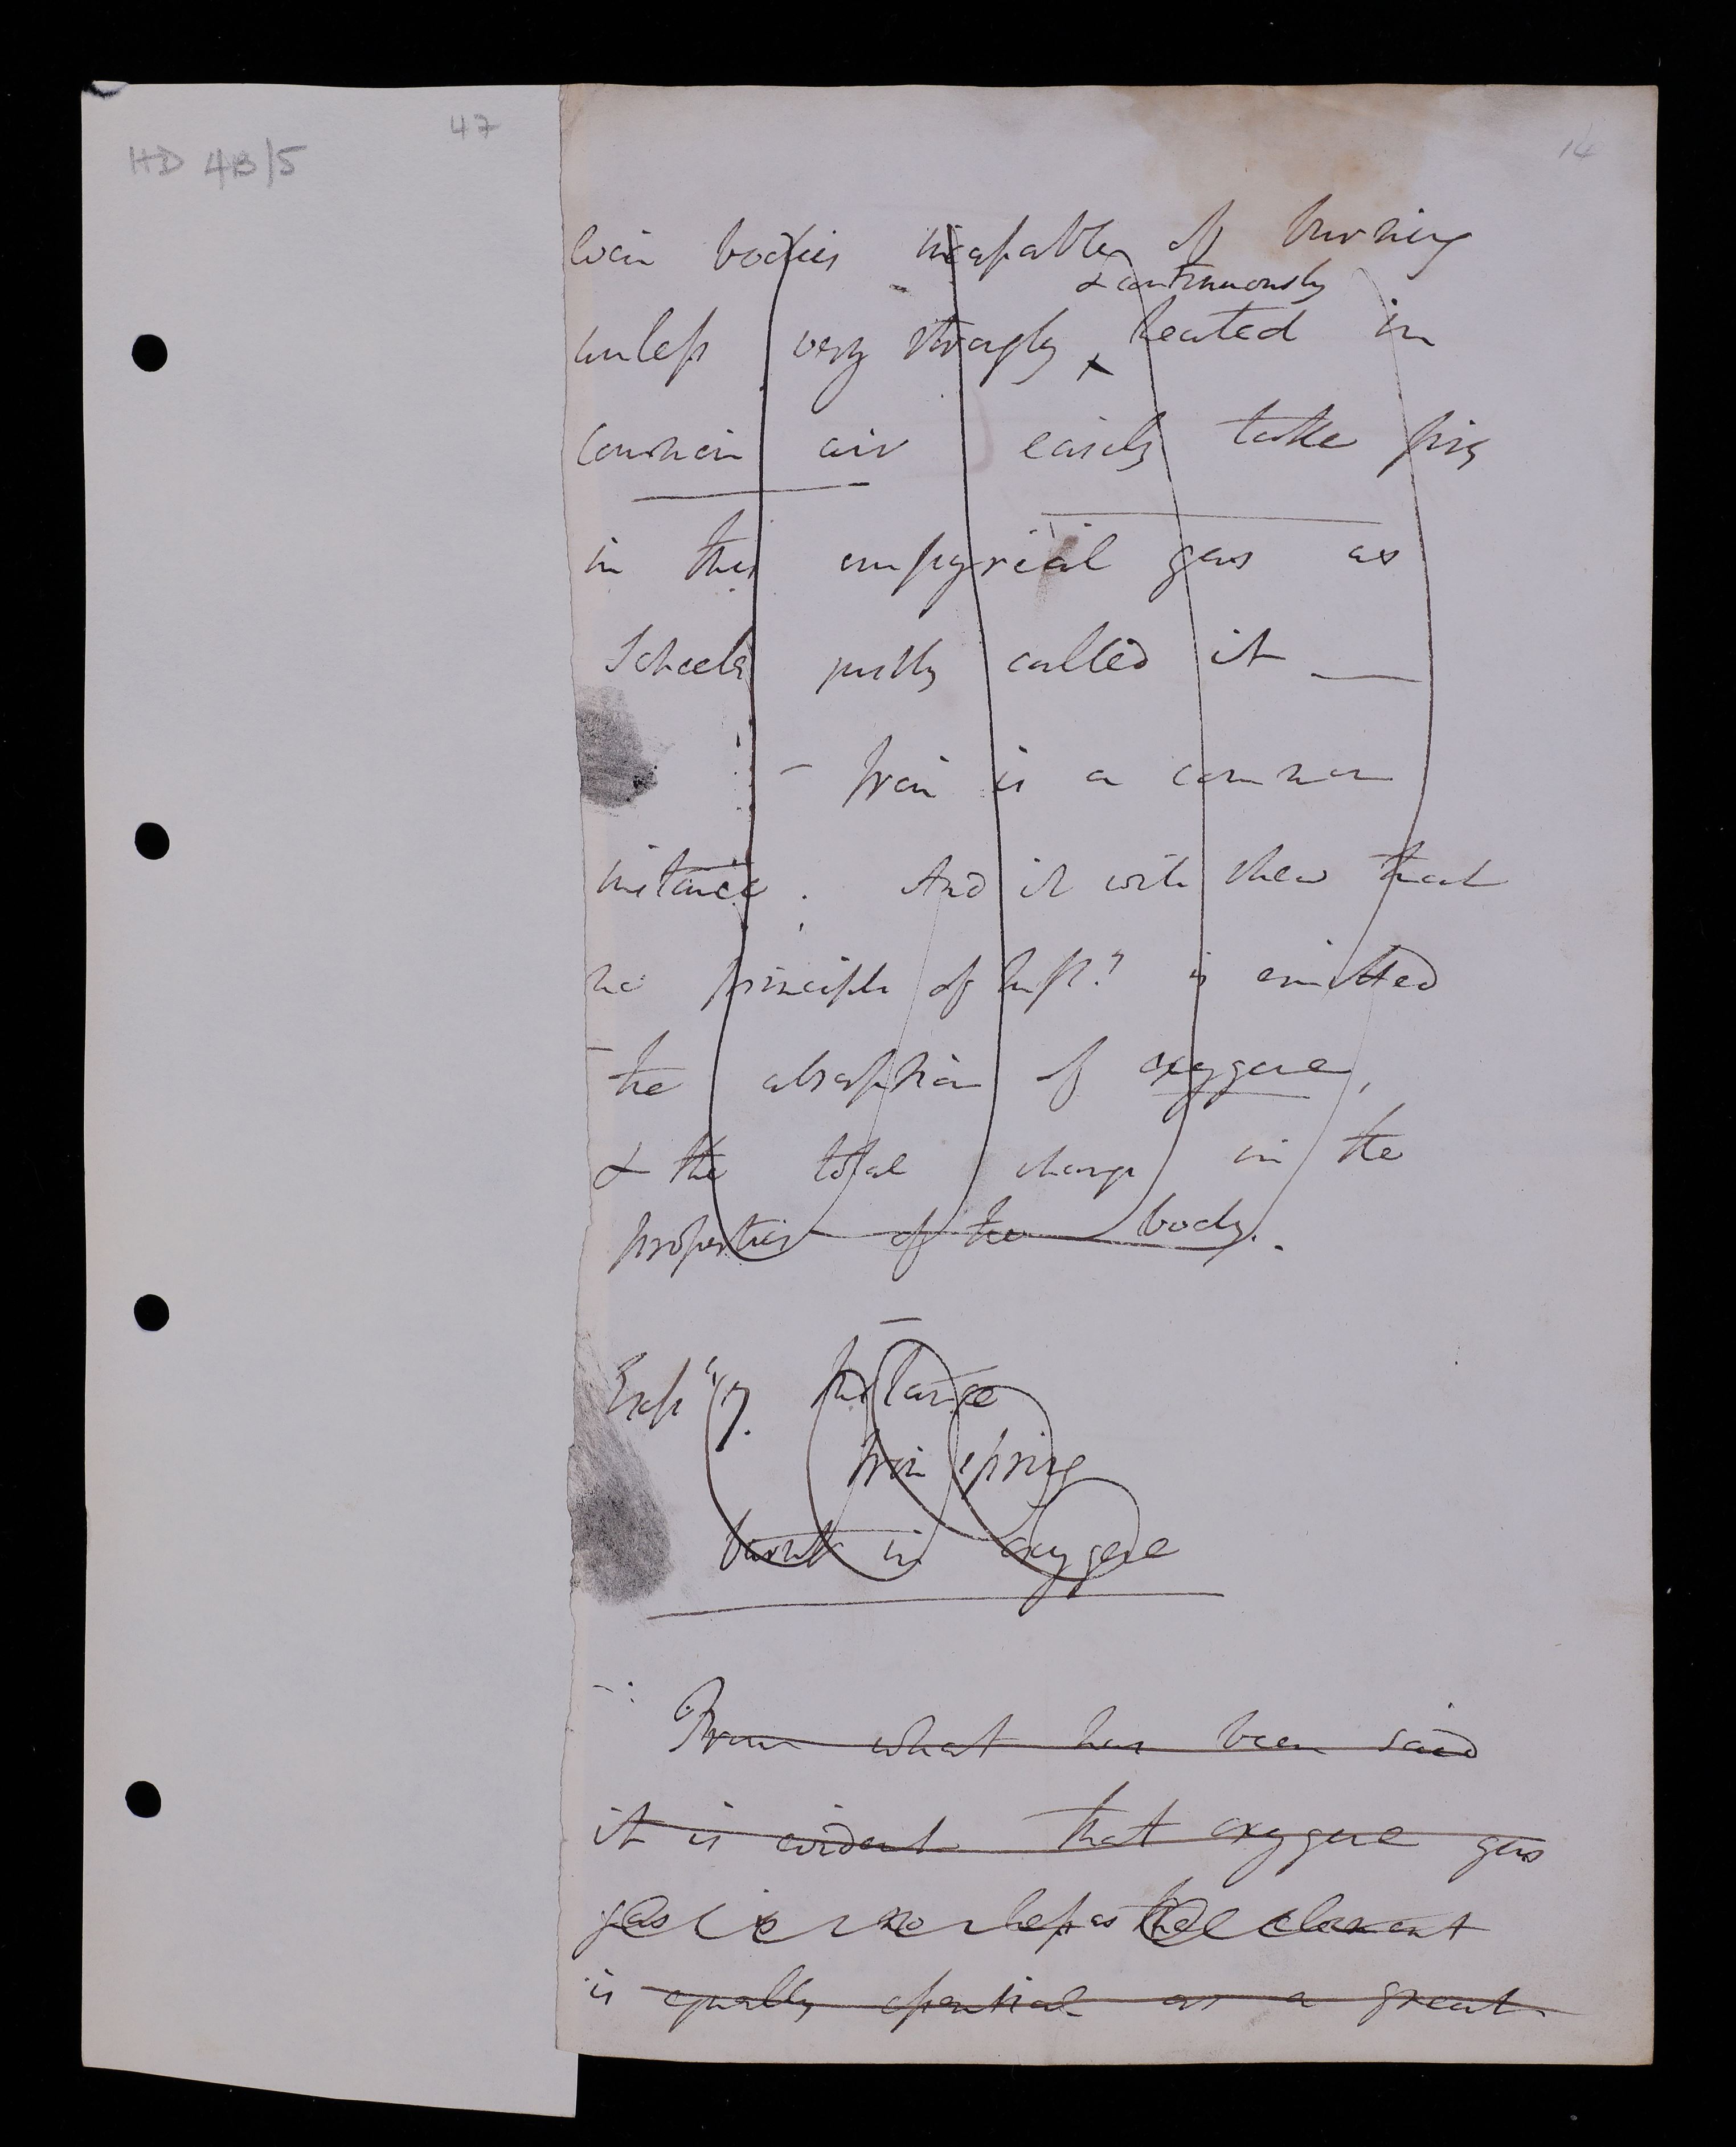 47
HD 4B/5
14
bodies incapable of burning
& continuously
unless very strongly heated in
common air easily take fire
in this empyrial gas as
Scheele justly called it —
- Iron is a common
instance. And it will shew that
no principle of is emitted
the absorption of oxygene,
& the total change in the
properties of the body.
Instance
Iron spring
burnt in oxygene
From what has been said
it is evident that oxygene gas
gas is no less as the element
is equally essential as a great